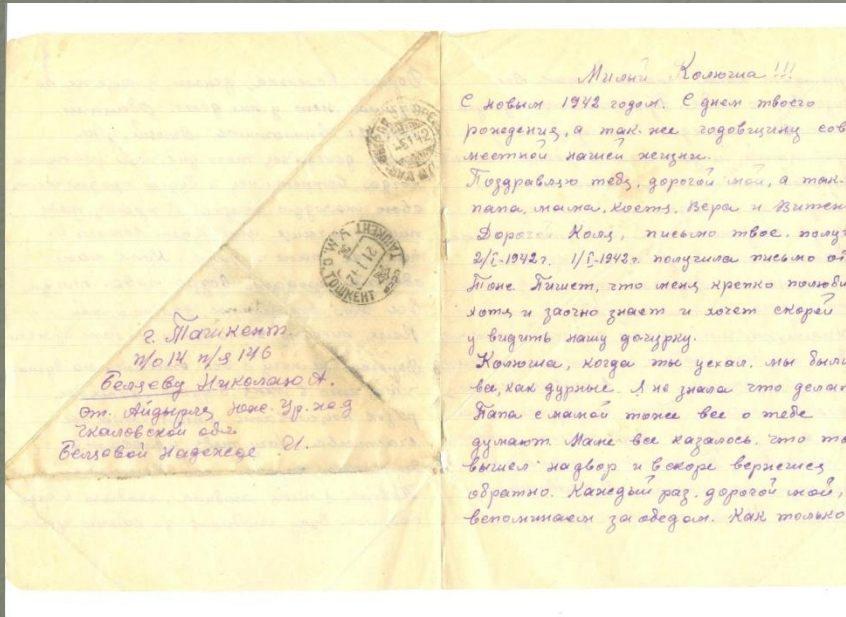 г. Ташкент
п/о 14 п/я 146
Белцеву Николаю А.
ст. Айдырля Юж. Ур. ж.д
Чкаловской обл
Белцовой Надежде И.
ТАШКЕНТ У.М.О. ТОШКЕНТ
Милый Колюша!!!
С новым 1942 годом. С днем твоего
рождения, а так-же годовщину сов
местной нашей жизни.
Поздравляю тебя, дорогой мой, а так-
папа, мама, Костя, Вера и Витень
Дорогой Коля, письмо твое, получ
2/I-1942г. 1/I-1942г. получила письмо от
Тоне. Пишет, что меня крепко полюби
хотя и заочно знает и хочет скорей
у видить нашу дочурку.
Колюша, когда ты уехал, мы были
все, как дурные. Я не знала что делат
Папа с мамой тоже все о тебе
думают. Маме все казалось, что ты
вышел на двор и вскоре вернешся
обратно. Каждый раз, дорогой мой,
вспоминаем за обедом. Как только